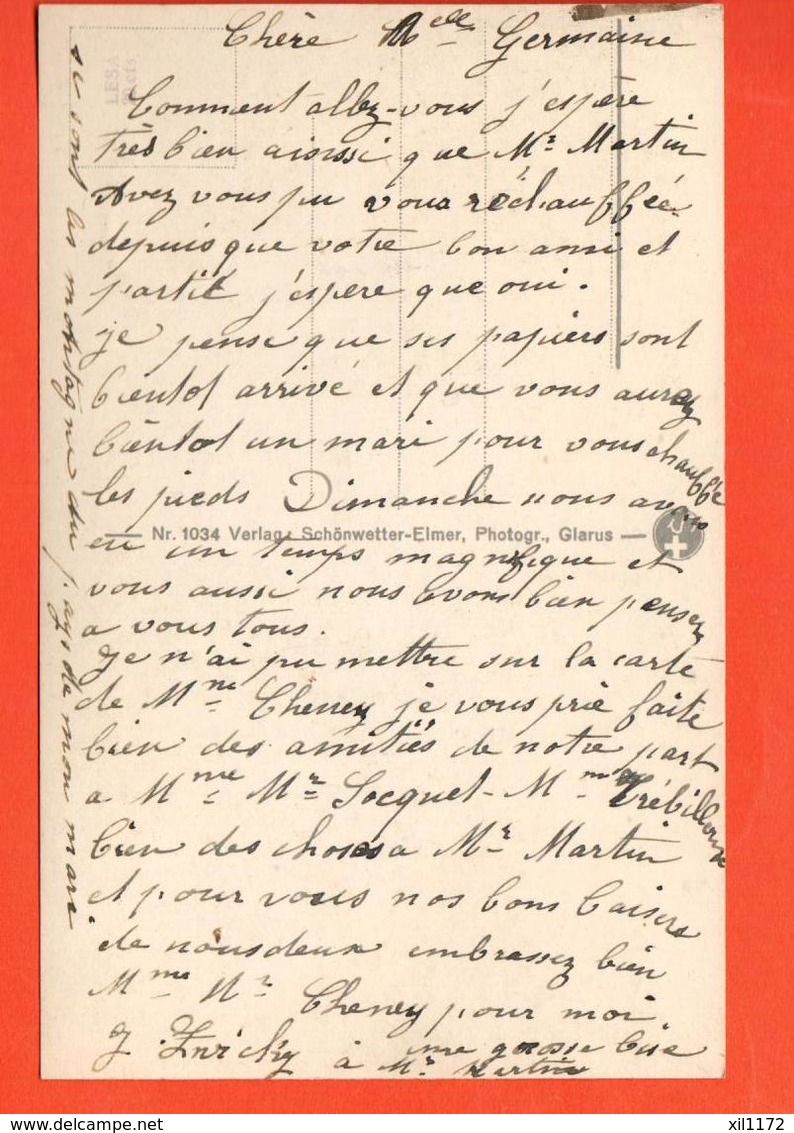 Chère Melle Germaine
Comment allez-vous j'espère
très bien ainsi que Mr Martin
Avez vous pu vous réchauffée
depuis que votre bon ami et
partit j'espere que oui.
je pense que ses papiers sont
bientot arrivé et que vous aurez
bientot un mari pour vous chauffé
les pieds Dimanche nous avons
Nr. 1034 Verlag: Schönwetter-Elmer, Photogr., Glarus
eu un temps magnifique et
vous aussi nous avons bien penser
a vous tous.
Je n'ai pu mettre sur la carte
de Mme Cheney je vous prie faite
bien des amitiés de notre part
a Mme Mr Socquet - Mme
bien des choses a Mr Martin
et pour vous nos bons baisers
de nous deux embrassez bien
Mme Mr Cheney pour moi
une grosse bise
à Mr Martin
se sont les montagne du pays de mon mari
LESA
xil1172